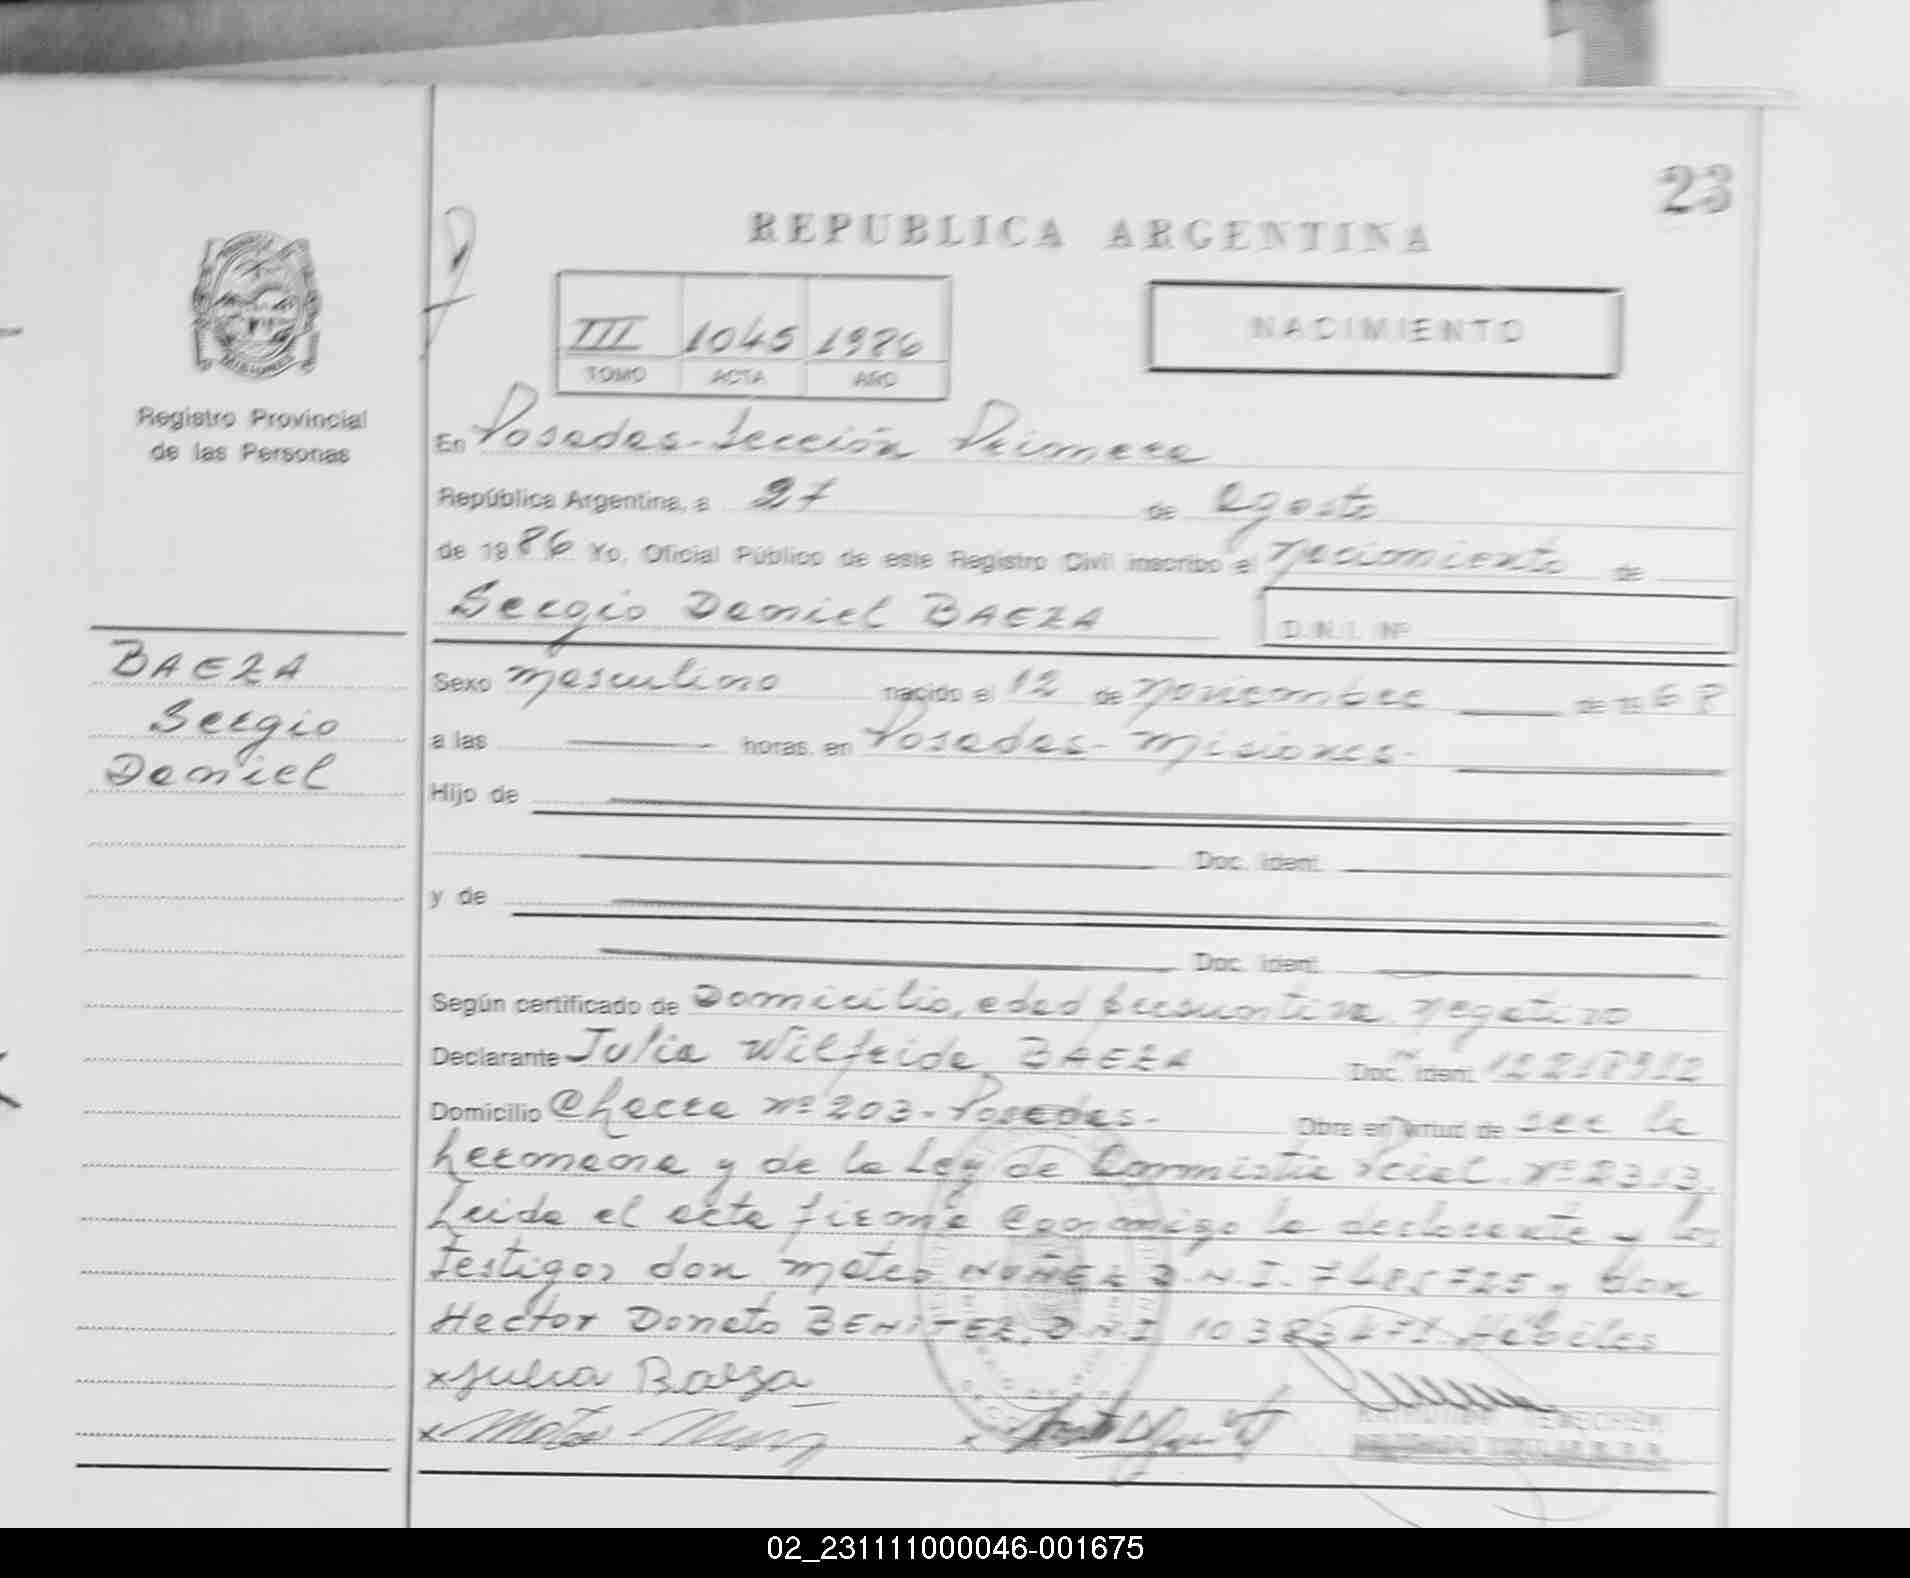 23
REPUBLICA ARGENTINA
III 1045 1986
TOMO ACTA AÑO
NACIMIENTO
Registro Provincial
de las Personas
En Posadas-Sección Primera
República Argentina, a 27 de agosto
de 1986 Yo, Oficial Público de este Registro Civil inscribo el Nacimiento de
Sergio Daniel BAEZA
D.N.I. Nº
BAEZA
Sergio
Daniel
Sexo masculino nacido el 12 de noviembre de 1968
a las horas, en Posadas- Misiones-
Hijo de
Doc. Ident.
y de
Doc. Ident.
Según certificado de Domicilio, edad presuntiva, negativo
Declarante Julia Wilfrida BAEZA Doc. Ident. 12218912
Domicilio Chacra nº 203- Posadas- Obra en virtud de ser la
hermana y de la Ley de Nº 2313.
Leida el acta firma conmigo la declarante y los
testigos don Mateo NUÑEZ D.N.I. 7485725 y don
Hector Donato BENITEZ, D.N.I. Hábiles
x Julia Baeza
x